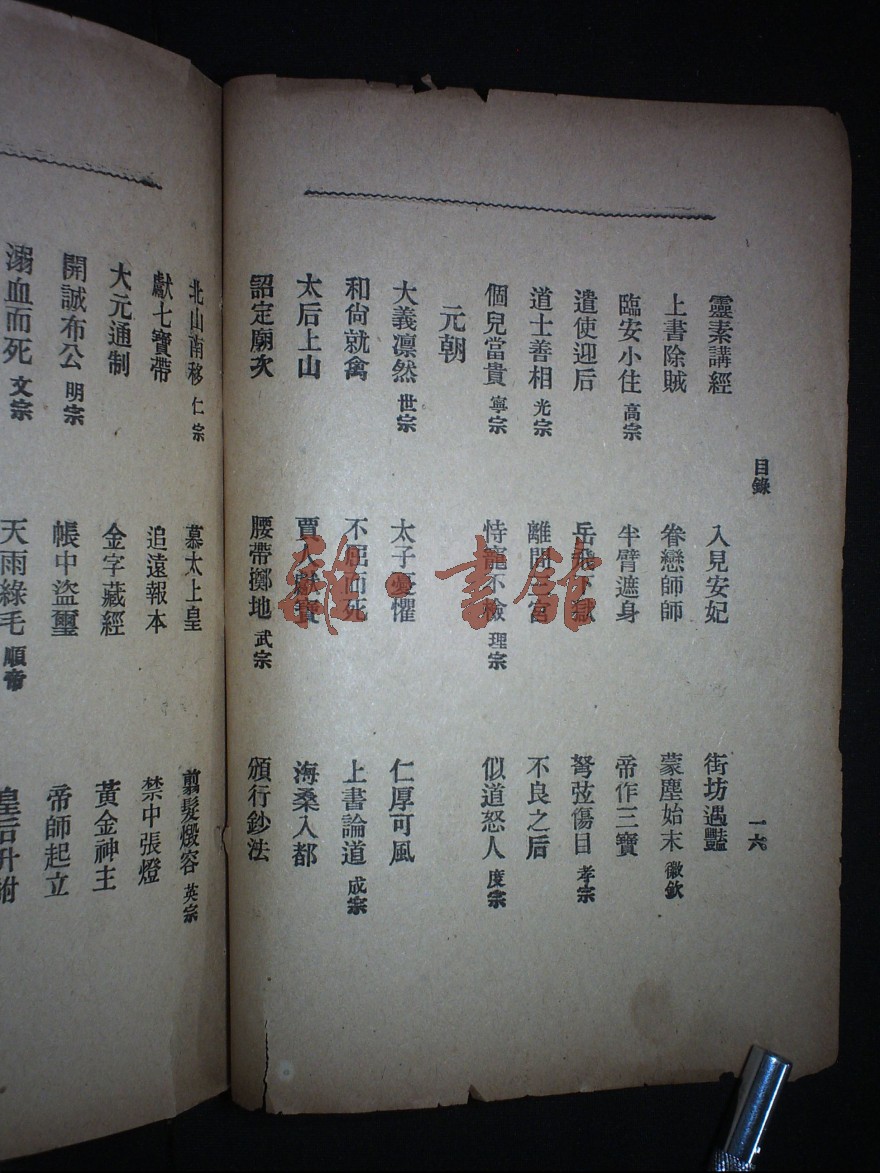 目錄
一六
靈素講經 入見安妃 街坊遇豔
上書除賊 眷戀師師 蒙塵始末 徽欽
臨安小住 高宗 半臂遮身 帝作三寶
遣使迎后 岳飛下獄 弩弦傷目 孝宗
道士善相 光宗 離間三宮 不良之后
個兒當貴 寧宗 恃寵不檢 理宗 似道怒人 度宗
元朝
大義凛然 世宗 太子憂懼 仁厚可風
和尙就禽 不屈而死 上書論道 成宗
太后上山 賈人獻寶 海桑入都
詔定廟次 腰帶擲地 武宗 頒行鈔法
北山南移 仁宗 慕太上皇 翦髮煅容 英宗
獻七寶帶 追遠報本 禁中張燈
大元通制 金字藏經 黃金神主
開誠布公 明宗 帳中盜璽 帝師起立
溺血而死 文宗 天雨綠毛 順帝 皇后升祔
雜·書館